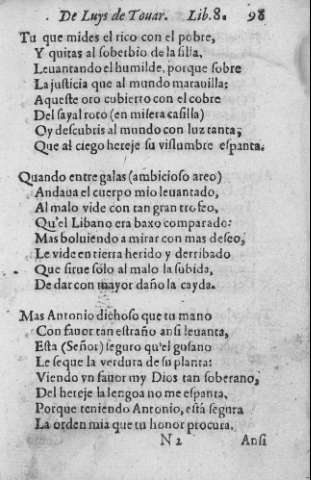 De Luys de Touar. Lib.8. 98
Tu que mides el rico con el pobre,
Y quitas al soberbio de la silla,
Leuantando el humilde, porque sobre
La justicia que al mundo marauilla:
Aqueste oro cubierto con el cobre
Del sayal roto (en misera casilla)
Oy descubris al mundo con luz tanta;
Que al ciego hereje su vislumbre espanta.
Quando entre galas (ambicioso areo)
Andaua el cuerpo mio leuantado,
Al malo vide con tan gran trofeo,
Qu'el Libano era baxo comparado:
Mas boluiendo a mirar con mas deseo,
Le vide en tierra herido y derribado
Que sirue sólo al malo la subida,
De dar con mayor daño la cayda.
Mas Antonio dichoso que tu mano
Con fauor tan estraño ansi leuanta,
Esta (Señor) seguro qu'el gusano
Le seque la verdura de su planta:
Viendo vn fauor my Dios tan soberano,
Del hereje la lengoa no me espanta,
Porque teniendo Antonio, está segura
La orden mia que tu honor procura.
N 2 Ansi